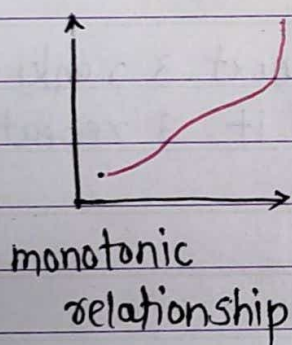 monotonic
relationship